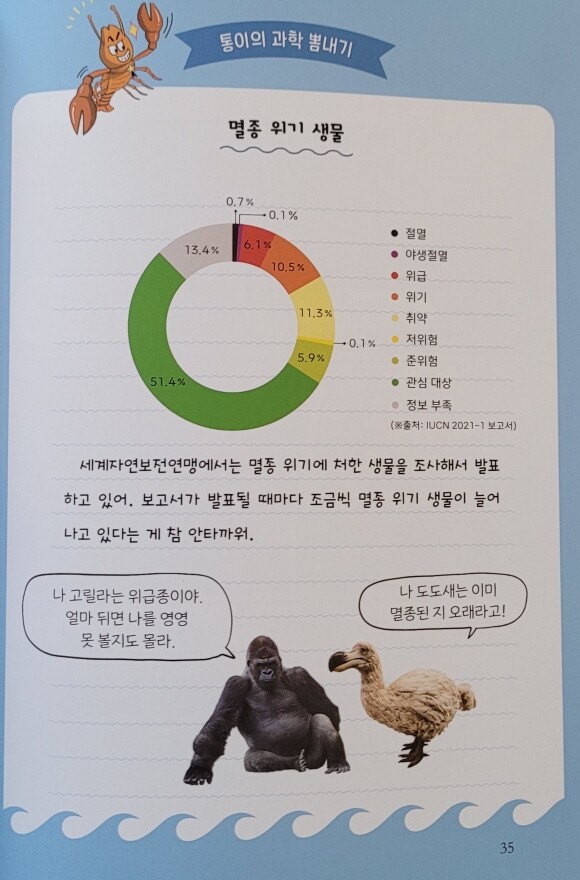 통이의 과학 뽐내기
멸종 위기 생물
0.7%
0.1%
6.1%
10.5%
11.3%
0.1%
5.9%
51.4%
13.4%
절멸
야생절멸
위급
위기
취약
저위험
준위험
관심 대상
정보 부족
(※출처: IUCN 2021-1 보고서)
세계자연보전연맹에서는 멸종 위기에 처한 생물을 조사해서 발표
하고 있어. 보고서가 발표될 때마다 조금씩 멸종 위기 생물이 늘어
나고 있다는 게 참 안타까워.
나 고릴라는 위급종이야.
얼마 뒤면 나를 영영
못 볼지도 몰라.
나 도도새는 이미
멸종된 지 오래라고!
35